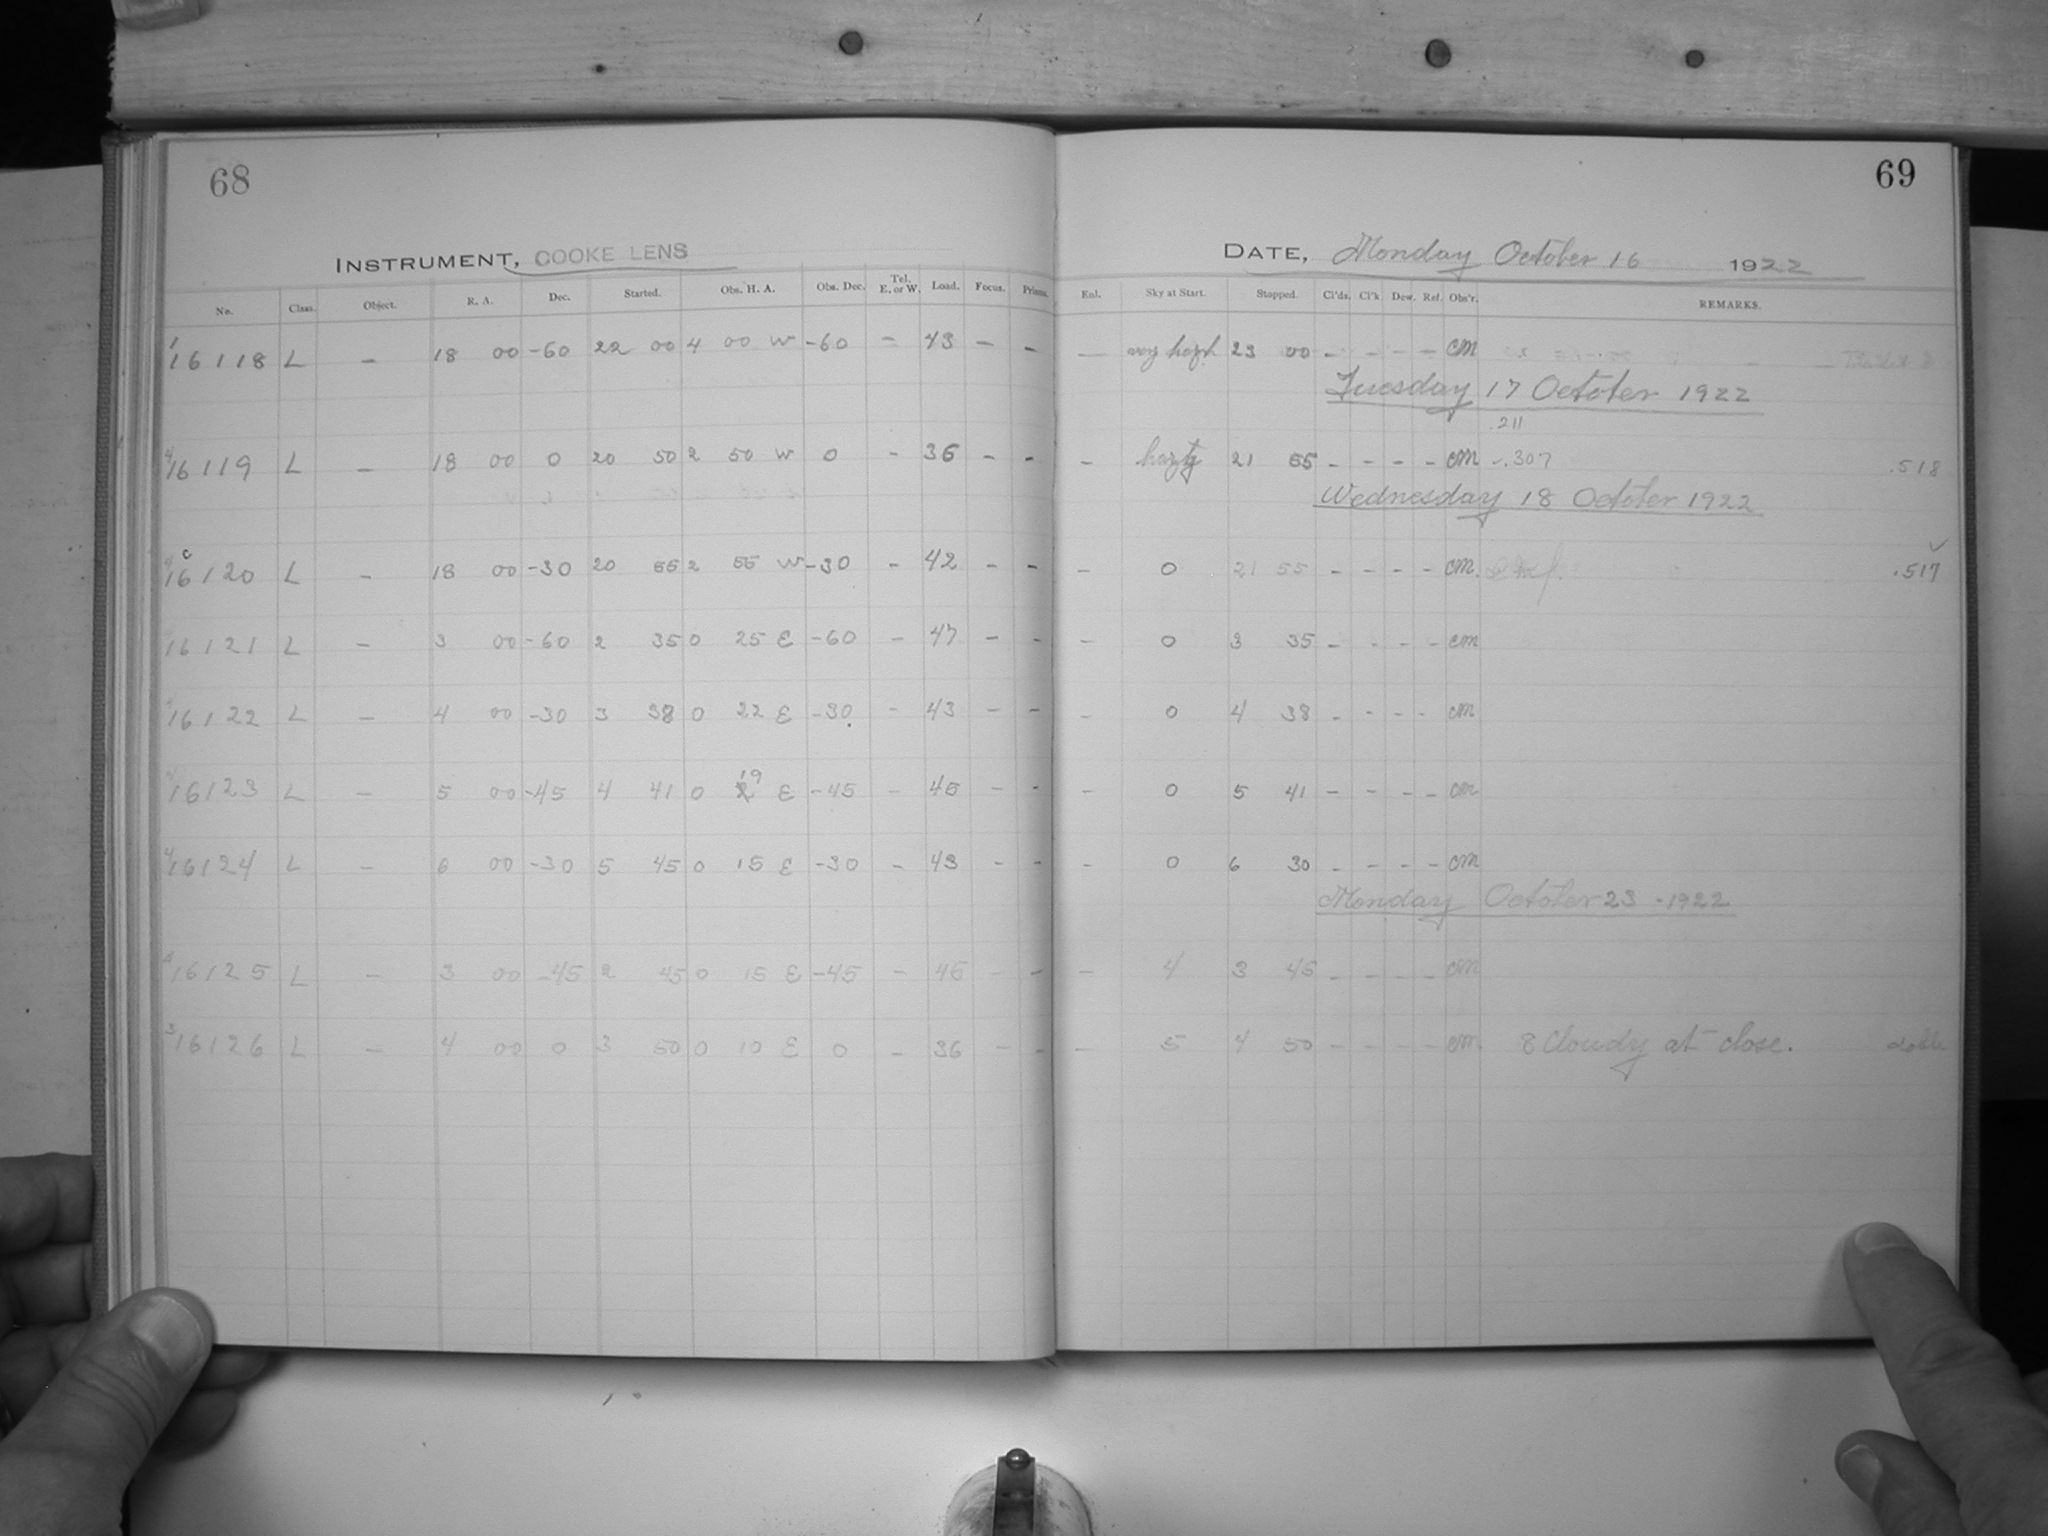 68
69
INSTRUMENT, COOKE LENS
DATE, Monday October 16 1922
No. Class. Object. R. A. Dec. Started. Obs. H. A. Obs. Dec. Tel. E. or W. Load. Focus. Prisms. Enl. Sky at Start. Stopped. Cl'ds. Cl'k. Dew. Ref. Obs'r. REMARKS.
1 16118 L – 18 00 -60 22 00 4 00 W -60 – 43 – – – very hazy 23 00 – – – – CM
Tuesday 17 October 1922
.211
4 16119 L – 18 00 0 20 50 2 50 W 0 – 36 – – – hazy 21 55 – – – – CM -.307 .518
Wednesday 18 October 1922
c
4 16120 L – 18 00 -30 20 55 2 55 W -30 – 42 – – – 0 21 55 – – – – CM. .517
16121 L – 3 00 -60 2 35 0 25 E -60 – 47 – – – 0 3 35 – – – – CM
16122 L – 4 00 -30 3 38 0 22 E -30 – 43 – – – 0 4 38 – – – – CM
16123 L – 5 00 -45 4 41 0 19 E -45 – 45 – – – 0 5 41 – – – – CM
4 16124 L – 6 00 -30 5 45 0 15 E -30 – 43 – – – 0 6 30 – – – – CM
Monday October 23 - 1922
4 16125 L – 3 00 -45 2 45 0 15 E -45 – 45 – – – 4 3 45 – – – – CM
3 16126 L – 4 00 0 3 50 0 10 E 0 – 36 – – – 5 4 50 – – – – CM 8 Cloudy at close.